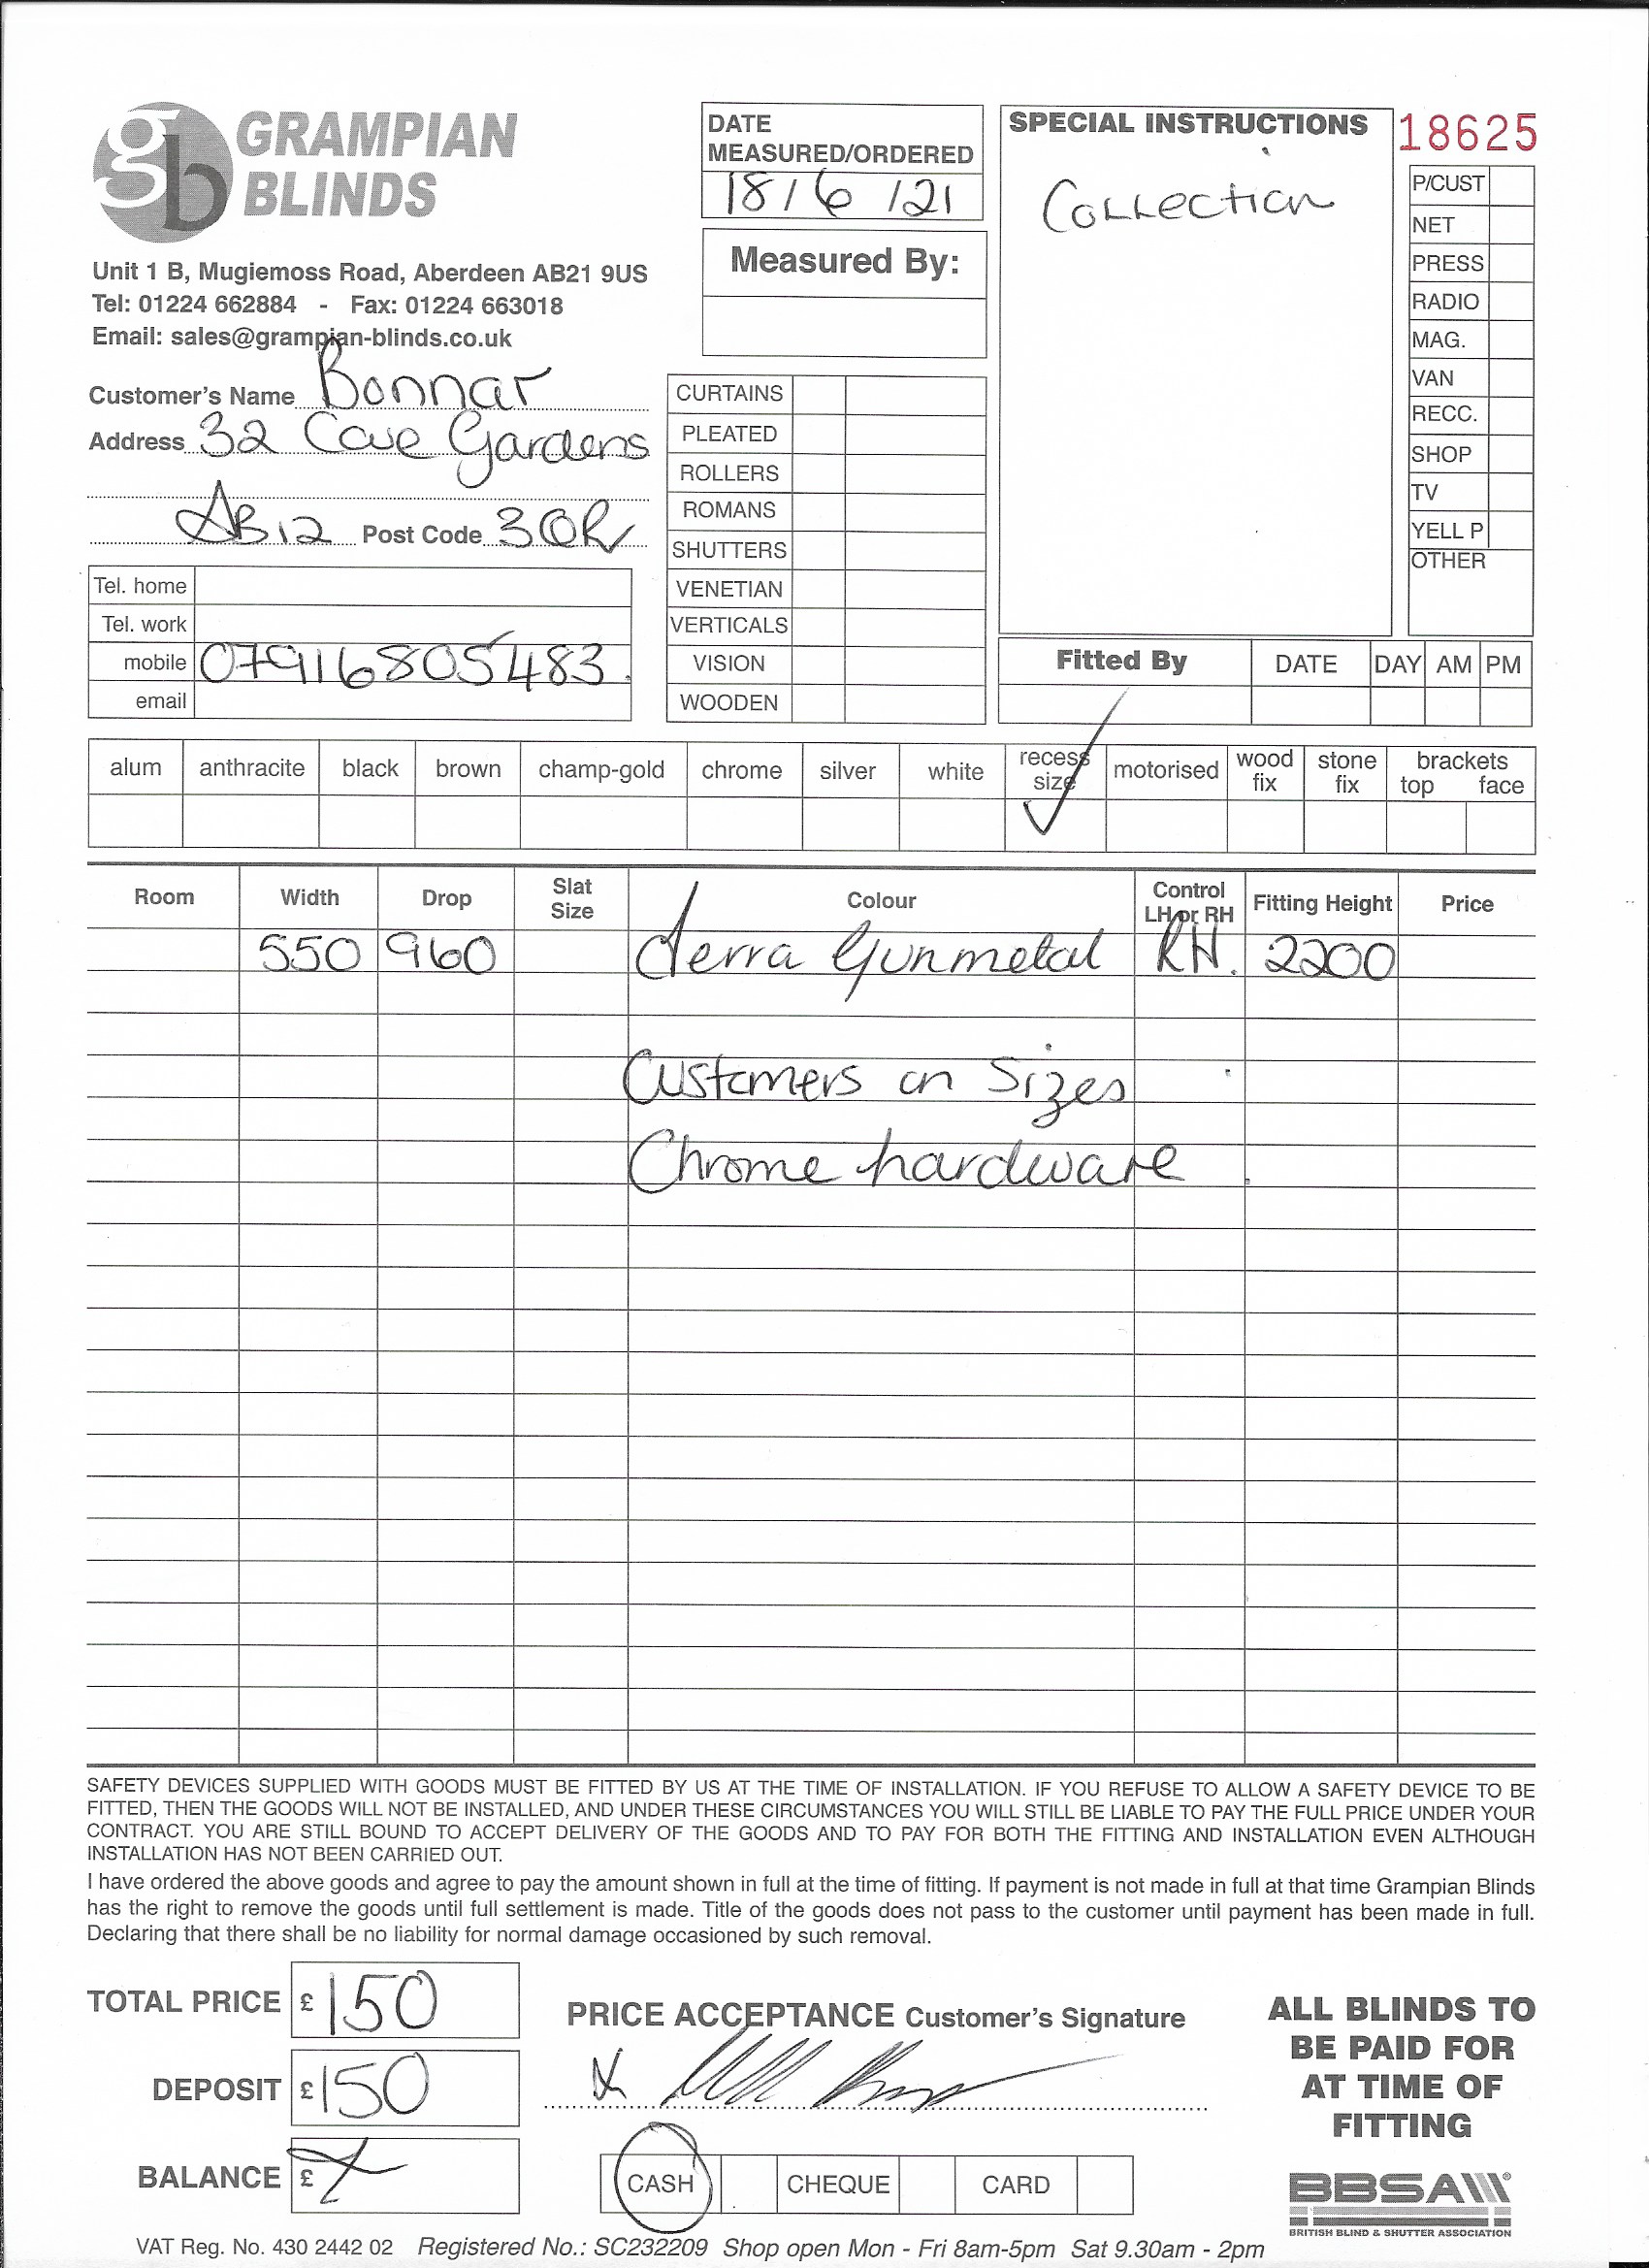 gb GRAMPIAN
BLINDS
Unit 1 B, Mugiemoss Road, Aberdeen AB21 9US
Tel: 01224 662884 - Fax: 01224 663018
Email: sales@grampian-blinds.co.uk
DATE
MEASURED/ORDERED
18/6/21
Measured By:
SPECIAL INSTRUCTIONS
Collection
18625
P/CUST
NET
PRESS
RADIO
MAG.
VAN
RECC.
SHOP
TV
YELL P
OTHER
Customer's Name Bonnar
Address 32 Cove Gardens
AB12 Post Code 3QR
Tel. home
Tel. work
mobile 07916805483
email
CURTAINS
PLEATED
ROLLERS
ROMANS
SHUTTERS
VENETIAN
VERTICALS
VISION
WOODEN
Fitted By DATE DAY AM PM
alum anthracite black brown champ-gold chrome silver white recess size motorised wood fix stone fix brackets top face
Room Width Drop Slat Size Colour Control LH or RH Fitting Height Price
550 960 Terra Gunmetal RH. 2200
Customers on Sizes
Chrome hardware
SAFETY DEVICES SUPPLIED WITH GOODS MUST BE FITTED BY US AT THE TIME OF INSTALLATION. IF YOU REFUSE TO ALLOW A SAFETY DEVICE TO BE
FITTED, THEN THE GOODS WILL NOT BE INSTALLED, AND UNDER THESE CIRCUMSTANCES YOU WILL STILL BE LIABLE TO PAY THE FULL PRICE UNDER YOUR
CONTRACT. YOU ARE STILL BOUND TO ACCEPT DELIVERY OF THE GOODS AND TO PAY FOR BOTH THE FITTING AND INSTALLATION EVEN ALTHOUGH
INSTALLATION HAS NOT BEEN CARRIED OUT.
I have ordered the above goods and agree to pay the amount shown in full at the time of fitting. If payment is not made in full at that time Grampian Blinds
has the right to remove the goods until full settlement is made. Title of the goods does not pass to the customer until payment has been made in full.
Declaring that there shall be no liability for normal damage occasioned by such removal.
TOTAL PRICE £150
DEPOSIT £150
BALANCE £
PRICE ACCEPTANCE Customer's Signature
x
CASH CHEQUE CARD
ALL BLINDS TO
BE PAID FOR
AT TIME OF
FITTING
BBSA®
BRITISH BLIND & SHUTTER ASSOCIATION
VAT Reg. No. 430 2442 02 Registered No.: SC232209 Shop open Mon - Fri 8am-5pm Sat 9.30am - 2pm